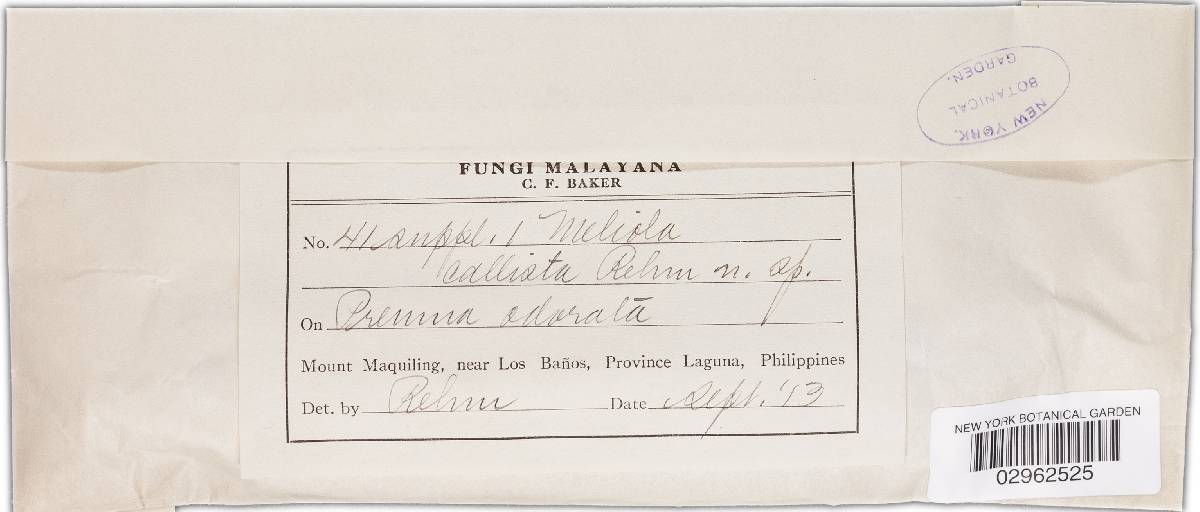 NEW YORK
BOTANICAL
GARDEN.
FUNGI MALAYANA
C. F. BAKER
No. 41 suppl. 1 Meliola
callista Rehm n. sp.
On Premna odorata
Mount Maquiling, near Los Baños, Province Laguna, Philippines
Det. by Rehm Date Sept. '13
NEW YORK BOTANICAL GARDEN
02962525